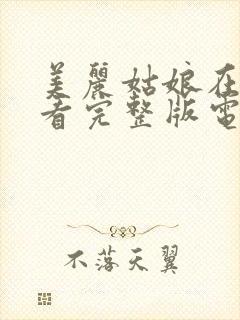 美麗姑娘在
看完整版電
不落天翼